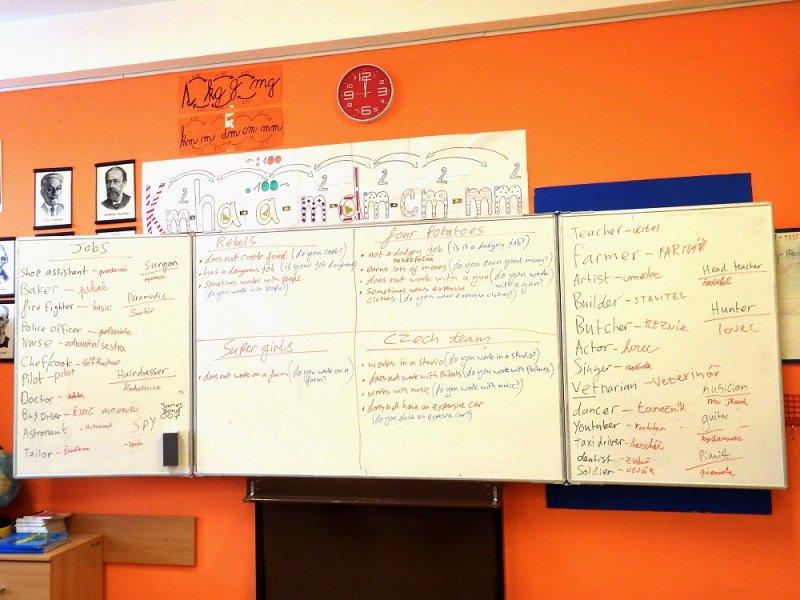 kg g mg
km m dm cm mm
:100
·100
m² ha a m² dm² cm² mm²
12
3
6
9
JOBS
Shop assistant - prodavač
Baker - pekař
fire fighter - hasič
Police officer - policista
Nurse - zdravotní sestra
Chef/cook - šéfkuchař
Pilot - pilot
Doctor - doktor
Bus Driver - ŘIDIČ AUTOBUSU
Astronaut - Astronaut
Tailor - Švadlena
Surgon
Paramedic
Hairdusser
Kadeřnice
James Bond 007
SPY
- špión
Rebels
• does not cook food (do you cook?)
• has a dangerous job (is your job dangerous
• sometimes works with people
(do you work with people?)
four Potatoes
• not a dodgey job (is it a dodgey job?)
nebezpečné
• earns lots of money (do you earn good money?)
• does not work with a gun (do you work with a gun?)
• Sometimes wears expensive
clothes (do you wear expensive clothes?)
Super girls
• does not work on a farm (do you work on a farm?)
Czech team
• works in a studio (do you work in a studio?)
• does not work with patients (do you work with patients
• works with music (do you work with music?)
• does not have an expensive car
(do you drive an expensive car?)
Teacher - učitel
Farmer - FARMÁŘ
Artist - umělec
Builder - STAVITEL
Butcher - ŘEZNÍK
Actor - herec
Singer -
Vetnarian - Veterinář
dancer - tanečník
Youtuber - Youtuber
taxi driver - taxikář
dentist - zubař
Soldier - VOJÁK
Head teacher
ředitel
Hunter
lovec
Musician
guitar
pianist
pianista
TEST